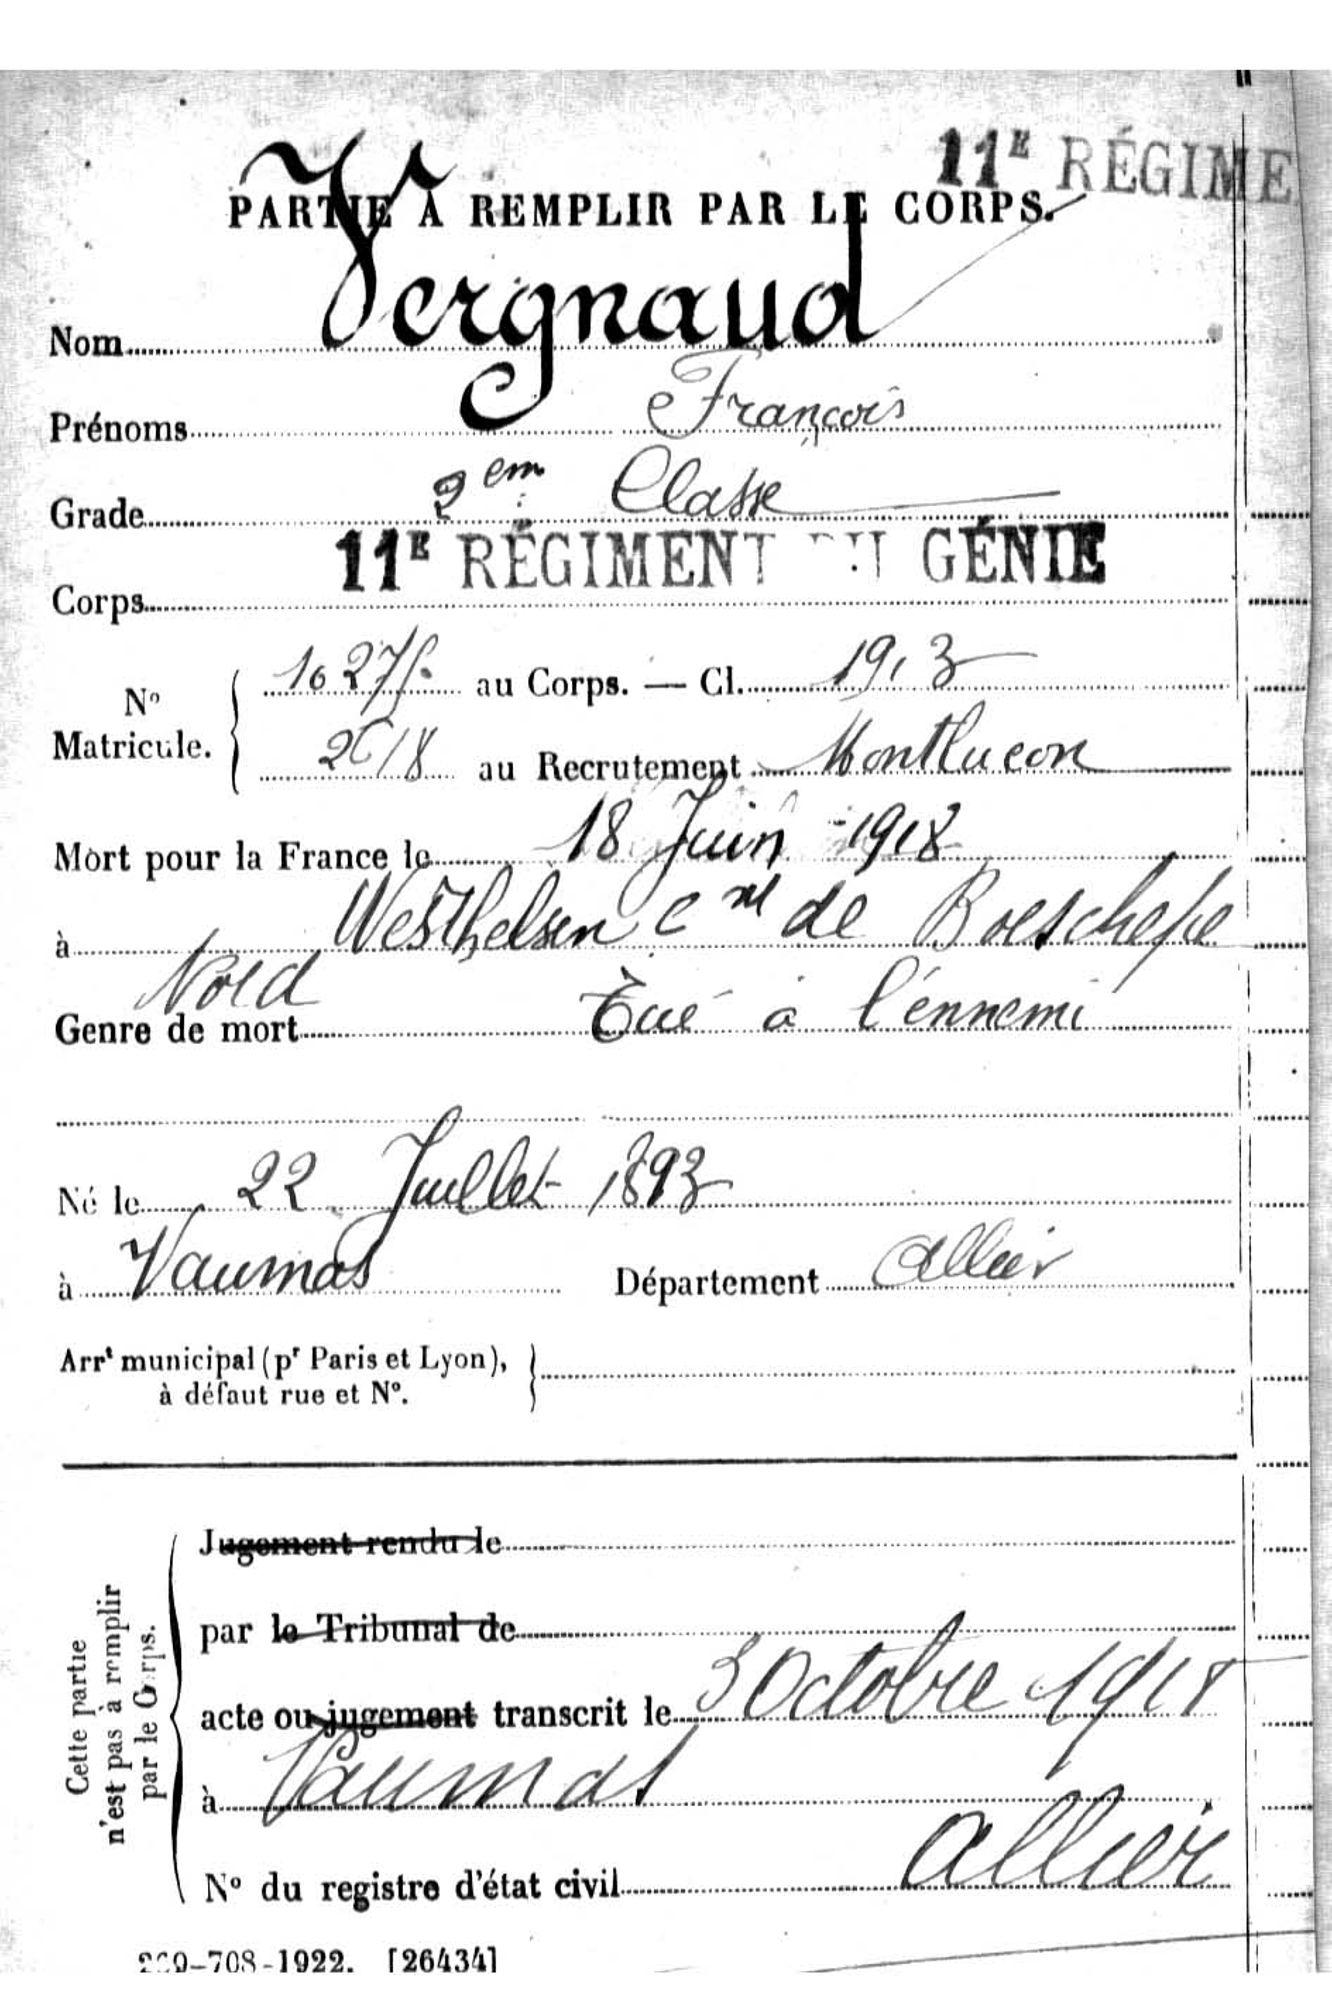 11E RÉGIME
PARTIE A REMPLIR PAR LE CORPS.
Nom Vergnaud
Prénoms François
Grade 2em Classe
Corps 11E RÉGIMENT DU GÉNIE
No Matricule. au Corps. — Cl. 1913
au Recrutement Montlucon
Mort pour la France le 18 Juin 1918
à de Boeschepe
Nord
Genre de mort Tué à l'énnemi
Né le 22 Juillet 1893
à Vaumas Département Allier
Arrt municipal (pr Paris et Lyon),
à défaut rue et No.
Cette partie
n'est pas à remplir
par le Corps.
Jugement rendu le
par le Tribunal de
acte ou jugement transcrit le 3 Octobre 1918
à Vaumas
Allier
No du registre d'état civil
-708-1922. [26434]